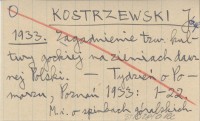 KOSTRZEWSKI J
1933. Zagadnienie trw. kul-
tury gockiej na ziemiach daw-
nej Polski. — Tydzień o Po-
morzu, Poznań 1933: 1-22.
M.i. o spinkach góralskich